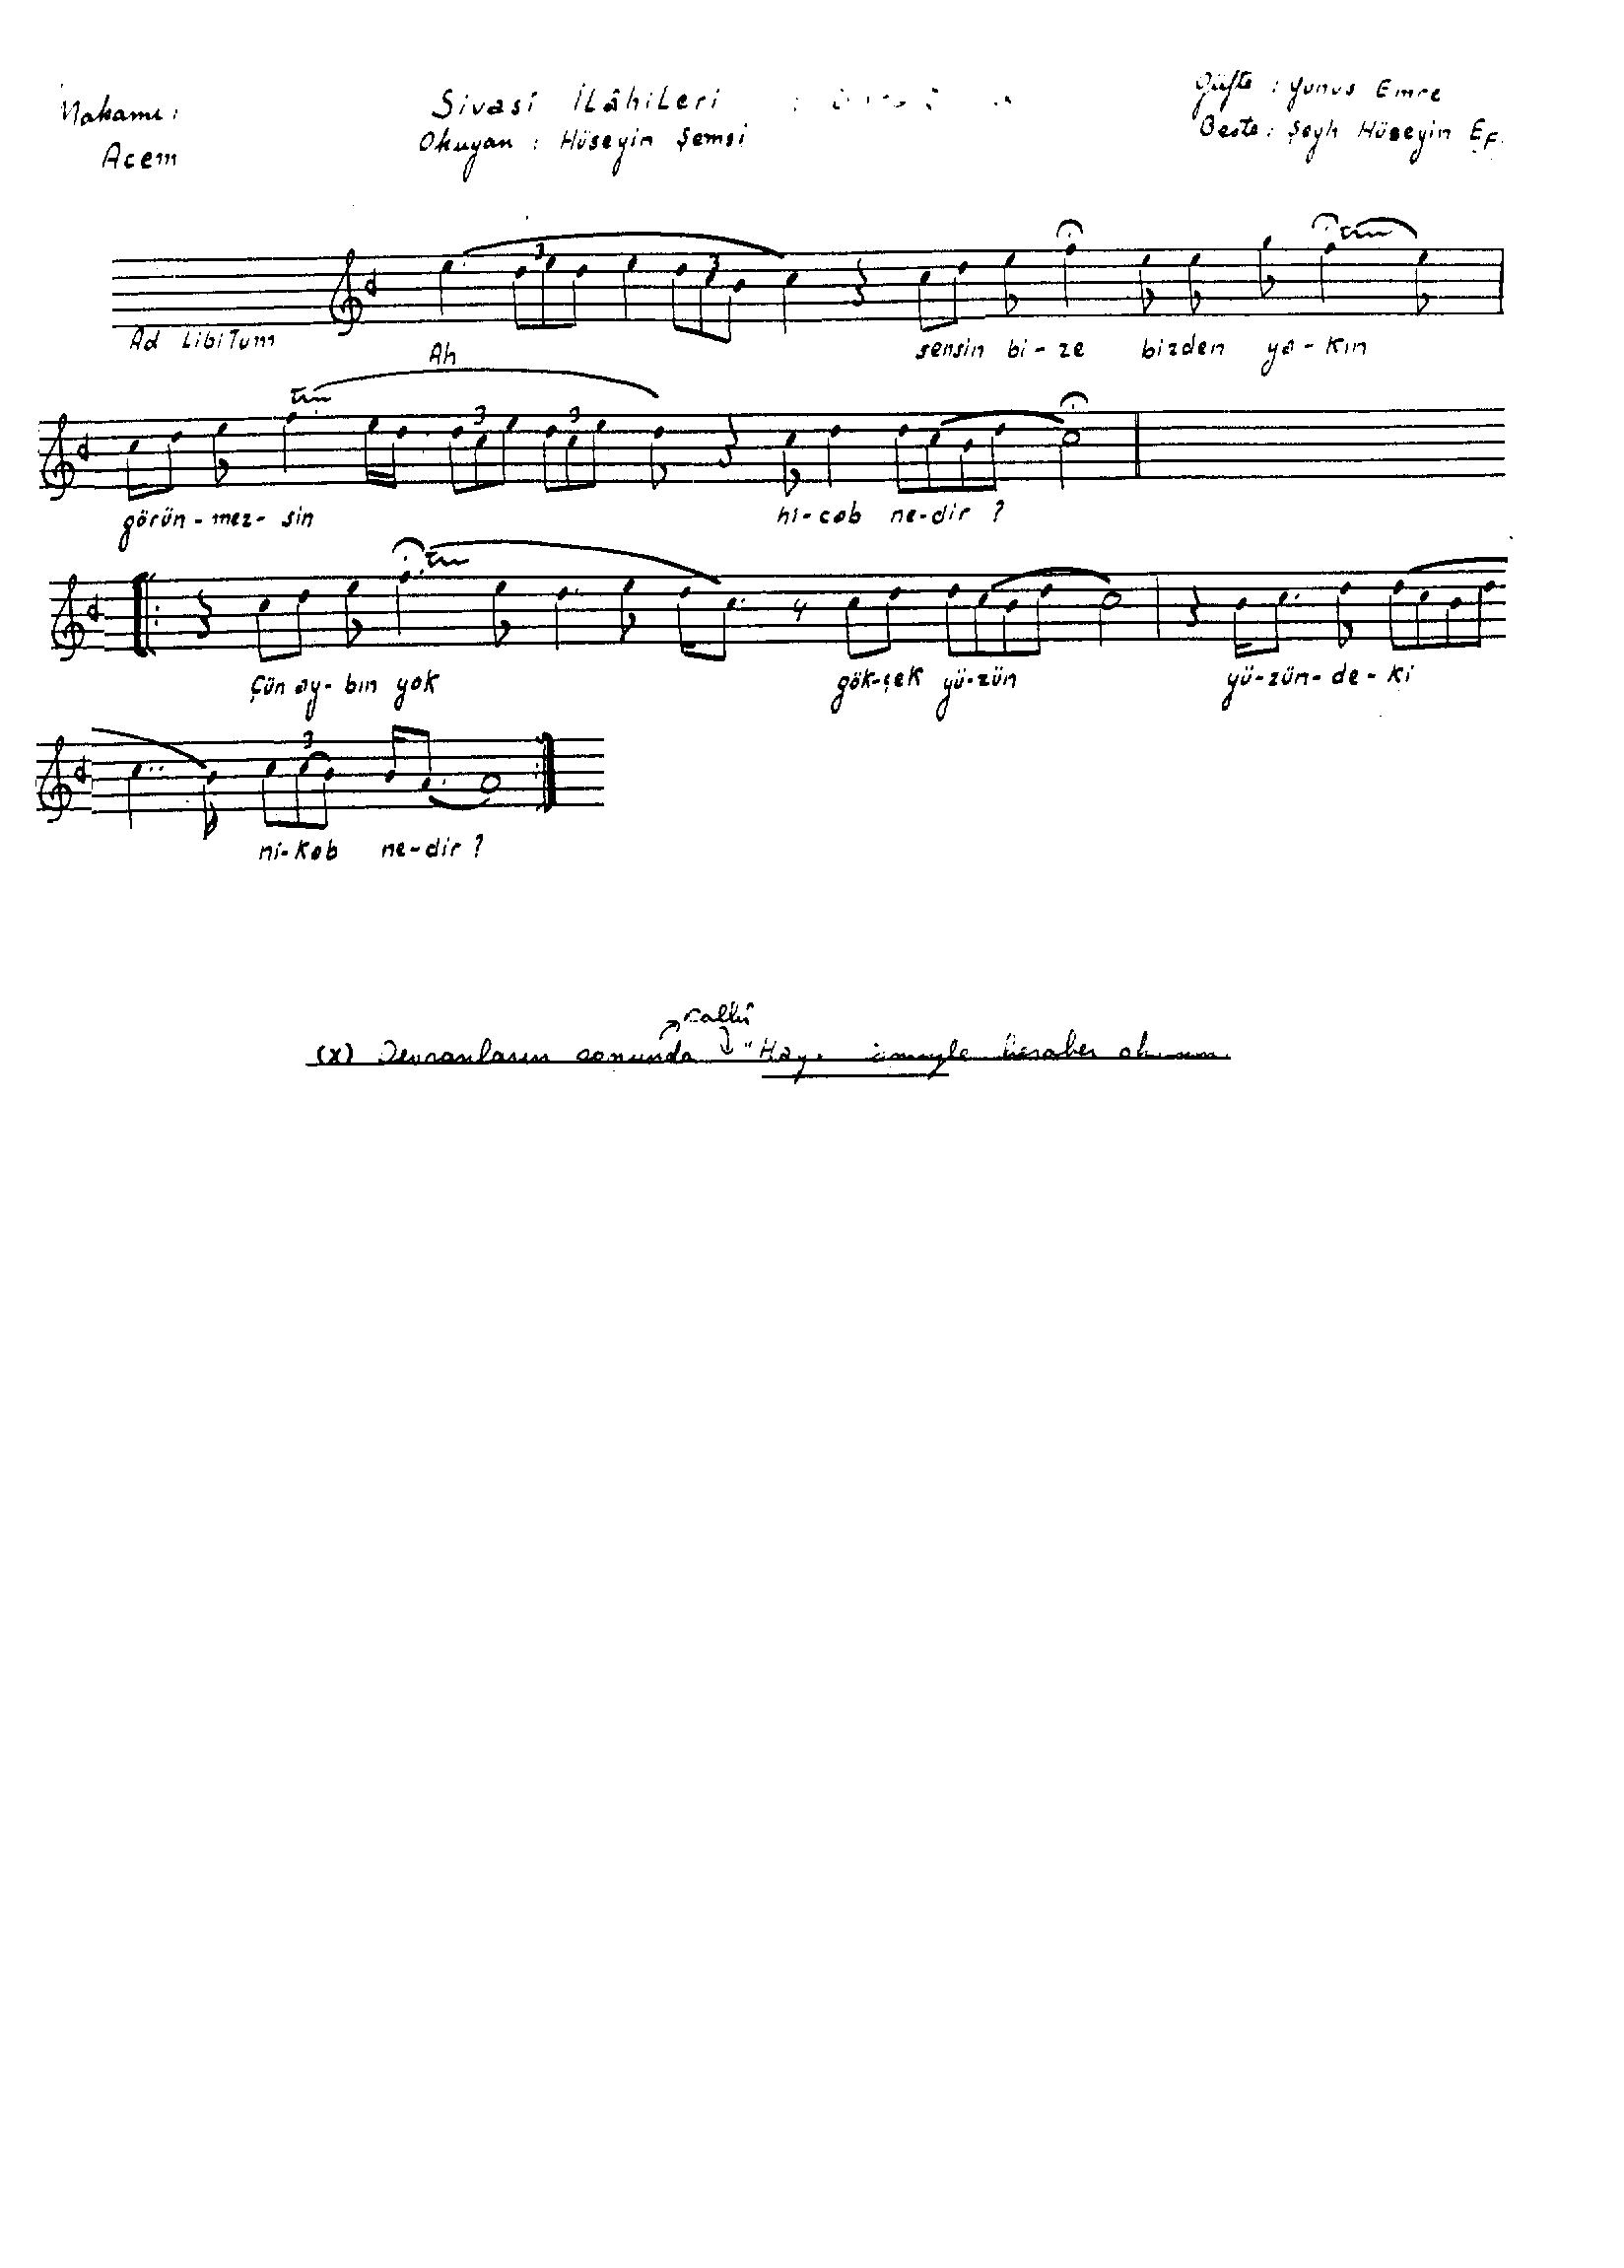 Makamı :
Acem
Sivasî İLâhiLeri :
Okuyan : Hüseyin Şemsi
Güfte : Yunus Emre
Beste : Şeyh Hüseyin Ef.
3 3 tr
Ad LibiTum Ah sensin bi-ze bizden ya-kın
tr 3 3
görün-mez-sin hi-cab ne-dir ?
tr
Çün ay-bın yok gök-çek yü-zün yü-zün-de-ki
3
ni-kab ne-dir ?
(x) Devranların sonunda "Hay ismiyle beraber okunur.